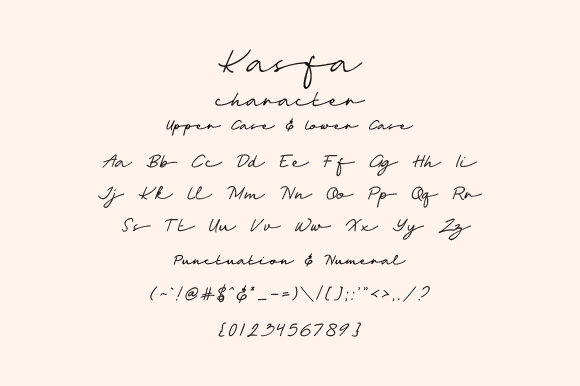 Kasfa
character
Upper Case & Lower Case
Aa Bb Cc Dd Ee Ff Gg Hh Ii
Jj Kk Ll Mm Nn Oo Pp Qq Rr
Ss Tt Uu Vv Ww Xx Yy Zz
Punctuation & Numeral
(~`!@#$^&*_-=)\|[];:'"<>,./?
{0123456789}